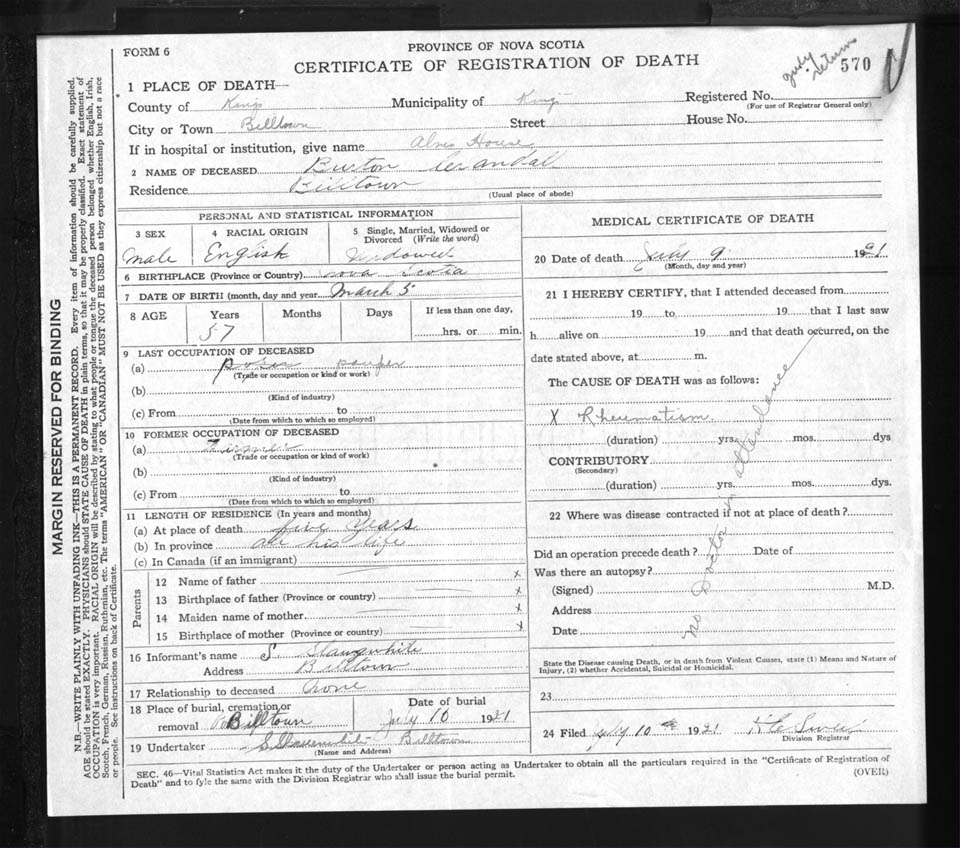 FORM 6
PROVINCE OF NOVA SCOTIA
CERTIFICATE OF REGISTRATION OF DEATH
July return 570
1 PLACE OF DEATH—
County of Kings Municipality of Kings Registered No.
(For use of Registrar General only)
City or Town Billtown Street House No.
If in hospital or institution, give name Alms House
2 NAME OF DECEASED Burton
Residence Billtown
(Usual place of abode)
PERSONAL AND STATISTICAL INFORMATION
3 SEX
male
4 RACIAL ORIGIN
English
5 Single, Married, Widowed or
Divorced (Write the word)
Widowed
6 BIRTHPLACE (Province or Country) Nova Scotia
7 DATE OF BIRTH (month, day and year March 5
8 AGE
Years
57
Months
Days
If less than one day,
hrs. or min.
9 LAST OCCUPATION OF DECEASED
(a) pauper
(Trade or occupation or kind or work)
(b)
(Kind of industry)
(c) From to
(Date from which to which so employed)
10 FORMER OCCUPATION OF DECEASED
(a)
(Trade or occupation or kind of work)
(b)
(Kind of industry)
(c) From to
(Date from which to which so employed)
11 LENGTH OF RESIDENCE (In years and months)
(a) At place of death five years
(b) In province all his life
(c) In Canada (if an immigrant)
Parents
12 Name of father x
13 Birthplace of father (Province or country) x
14 Maiden name of mother x
15 Birthplace of mother (Province or country) x
16 Informant's name S Slaugwhite
Address Billtown
17 Relationship to deceased none
18 Place of burial, cremation or
removal Billtown
Date of burial
July 10 1921
19 Undertaker S Slaugwhite Billtown
(Name and Address)
MEDICAL CERTIFICATE OF DEATH
20 Date of death July 9 1921
(Month, day and year)
21 I HEREBY CERTIFY, that I attended deceased from
19 to 19 that I last saw
h alive on 19 and that death occurred, on the
date stated above, at m.
The CAUSE OF DEATH was as follows:
X Rheumatism
(duration) yrs. mos. dys
CONTRIBUTORY
(Secondary)
(duration) yrs. mos. dys.
22 Where was disease contracted if not at place of death?
Did an operation precede death? Date of
Was there an autopsy?
(Signed) M.D.
Address
Date
No Doctor in attendance
State the Disease causing Death, or in death from Violent Causes, state (1) Means and Nature of
Injury, (2) whether Accidental, Suicidal or Homicidal.
23
24 Filed July 10th 1921
Division Registrar
SEC. 46—Vital Statistics Act makes it the duty of the Undertaker or person acting as Undertaker to obtain all the particulars required in the "Certificate of Registration of
Death" and to fyle the same with the Division Registrar who shall issue the burial permit.
(OVER)
MARGIN RESERVED FOR BINDING
N.B.—WRITE PLAINLY WITH UNFADING INK—THIS IS A PERMANENT RECORD. Every item of information should be carefully supplied.
AGE should be stated EXACTLY. PHYSICIANS should STATE CAUSE OF DEATH in plain terms, so that it may be properly classified. Exact statement of
OCCUPATION is very important. RACIAL ORIGIN will be described by stating to what people or tongue the deceased person belonged whether English, Irish,
Scotch, French, German, Russian, Ruthenian, etc. The terms "AMERICAN" OR "CANADIAN" MUST NOT BE USED as they express citizenship but not a race
or people. See instructions on back of Certificate.